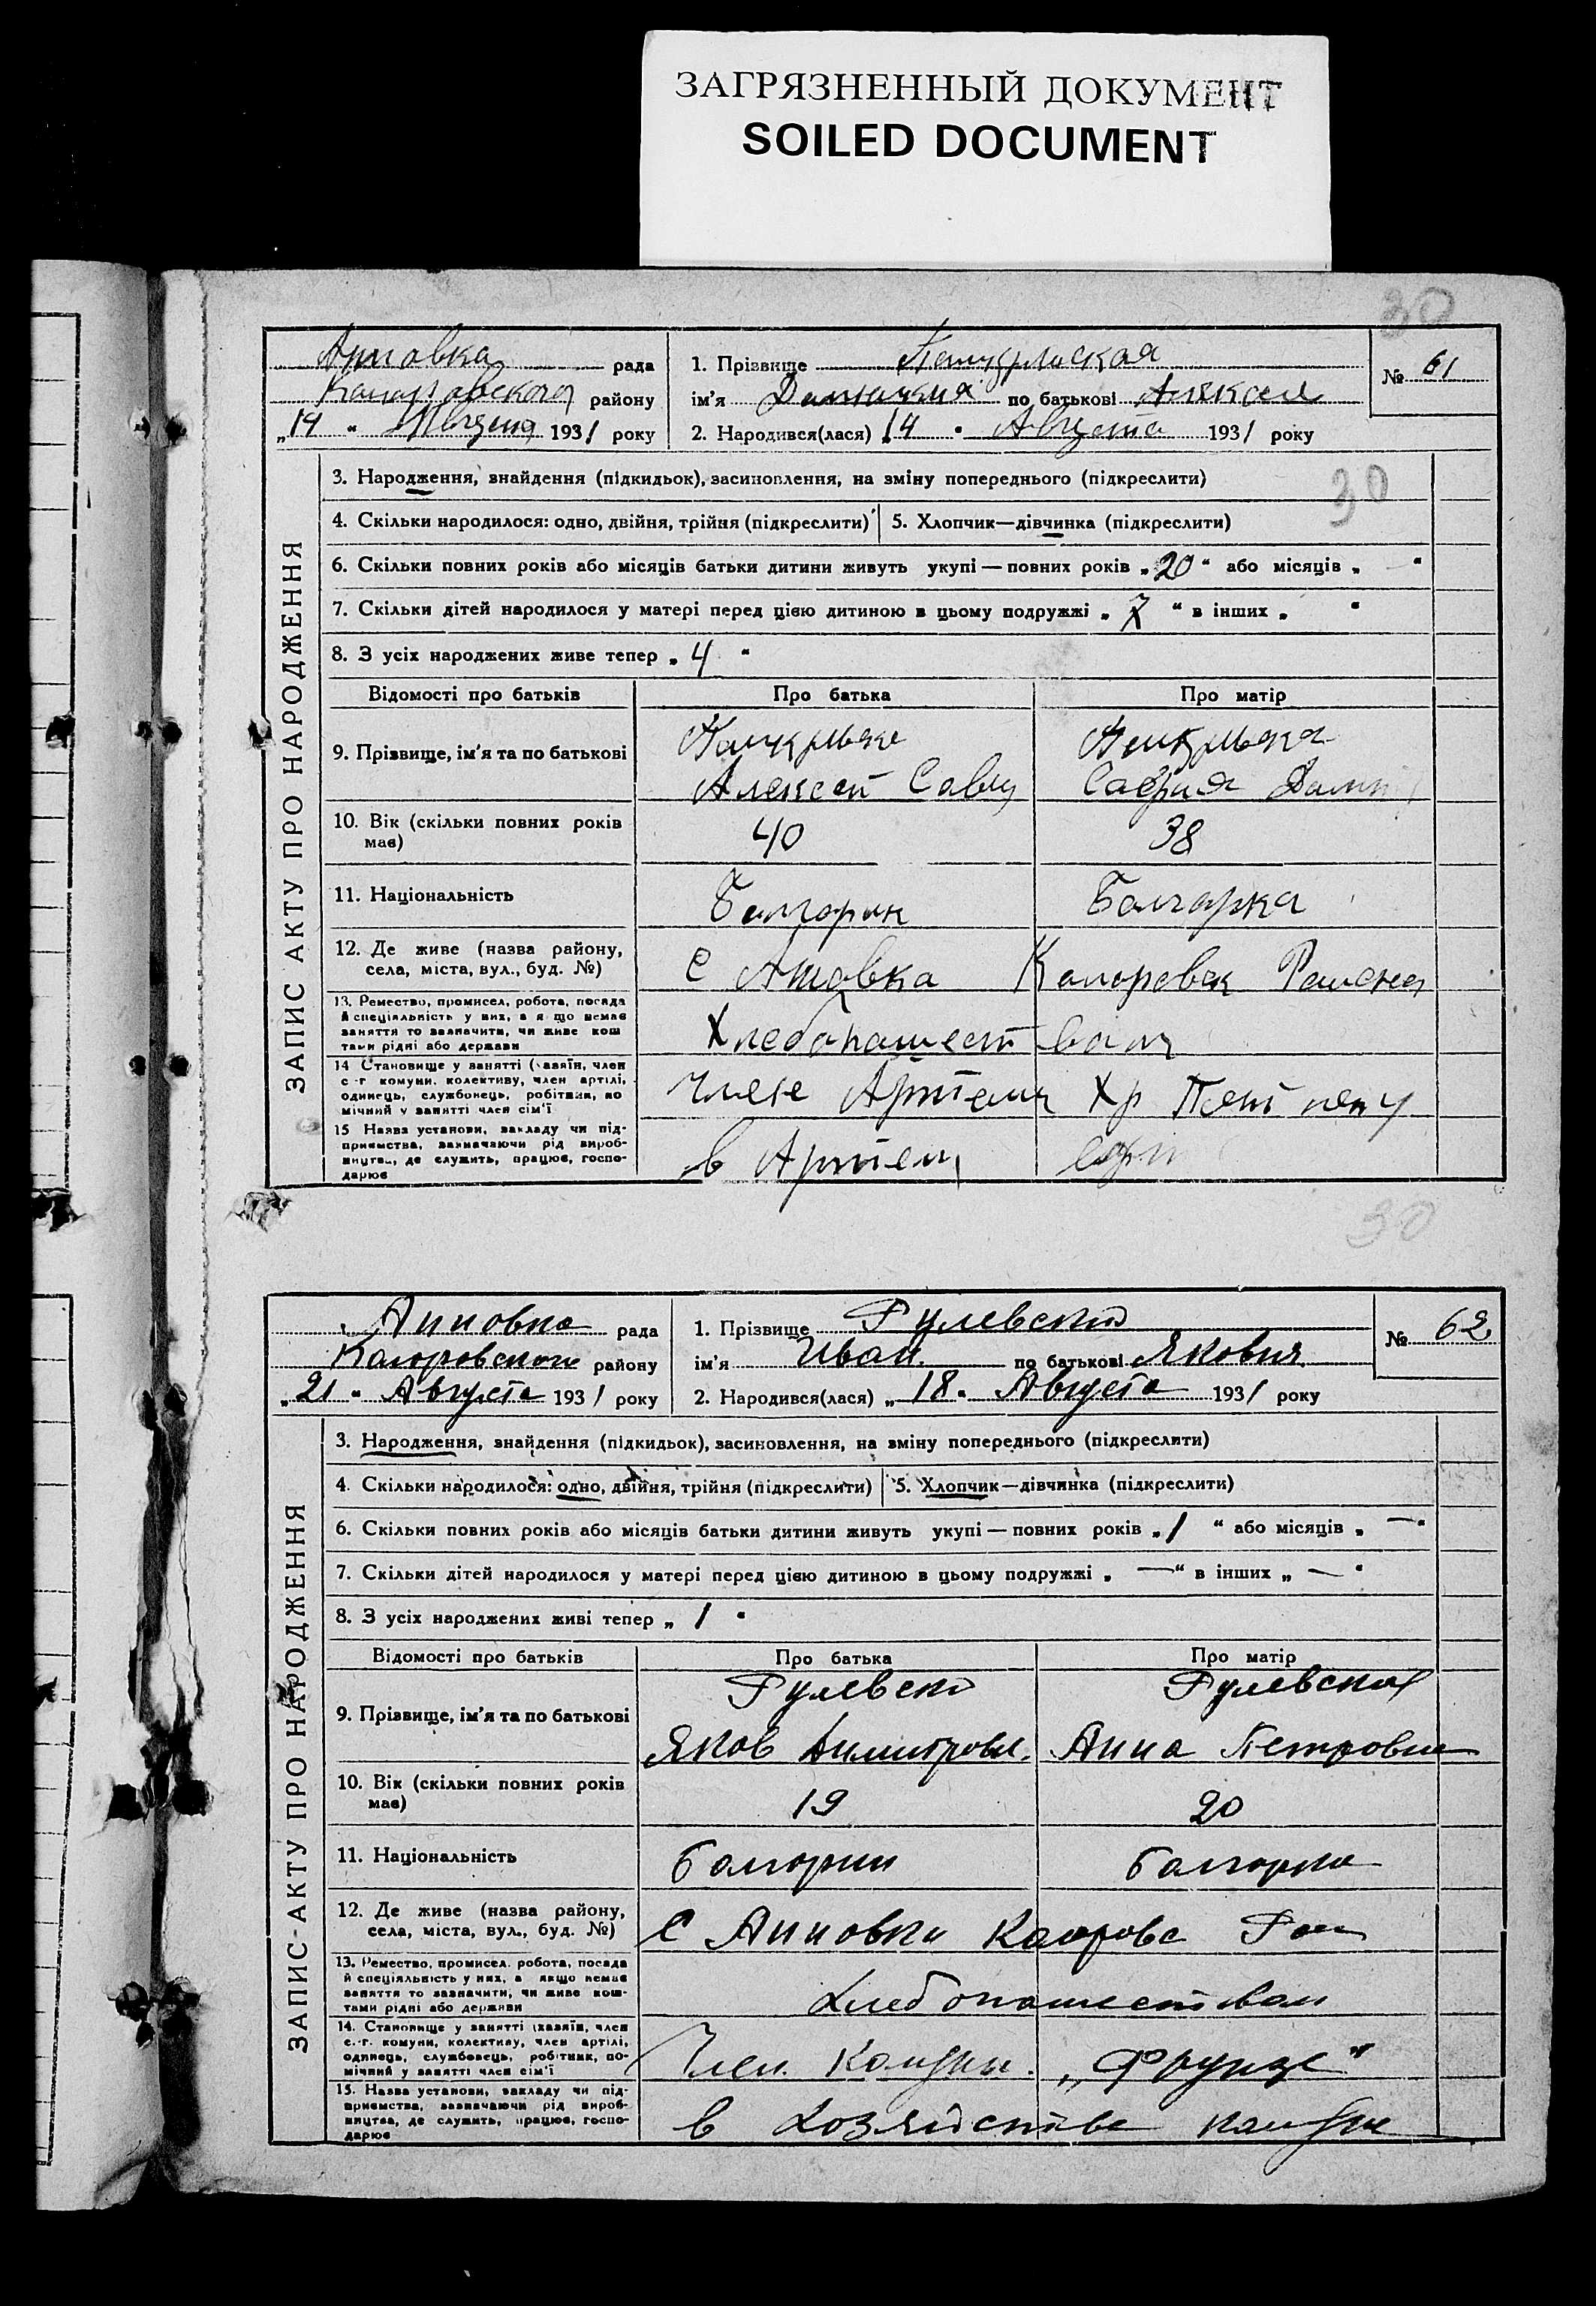 ЗАГРЯЗНЕННЫЙ ДОКУМЕНТ
SOILED DOCUMENT
30
рада
району
„14“ 1931 року
1. Прізвище
ім'я по батькові
2. Народився(лася) „14“ Августа 1931 року
№ 61
ЗАПИС АКТУ ПРО НАРОДЖЕННЯ
3. Народження, знайдення (підкидьок), засиновлення, на зміну попереднього (підкреслити)
30
4. Скільки народилося: одно, двійня, трійня (підкреслити)
5. Хлопчик—дівчинка (підкреслити)
6. Скільки повних років або місяців батьки дитини живуть укупі — повних років „20“ або місяців „—“
7. Скільки дітей народилося у матері перед цією дитиною в цьому подружжі „7“ в інших „ “
8. З усіх народжених живе тепер „4“
Відомості про батьків
Про батька
Про матір
9. Прізвище, ім'я та по батькові
Алексей
10. Вік (скільки повних років
має)
40
38
11. Національність
Болгарин
Болгарка
12. Де живе (назва району,
села, міста, вул., буд. №)
С
13. Ремество, промисел, робота, посада
й спеціяльність у них, а якщо немає
заняття то зазначити, чи живе кош
тами рідні або держави
Хлебопашеством
14 Становище у занятті (хазяїн, член
с.-г. комуни, колективу, член артілі,
одинець, службовець, робітник, по
мічний у занятті член сім'ї
Член Артели
15 Назва установи, закладу чи під-
приємства, зазначаючи рід вироб-
ництва, де служить, працює, госпо-
дарює
в Артели
30
Анновка рада
району
„21“ Августа 1931 року
1. Прізвище Гулевский
ім'я Иван по батькові Яковия
2. Народився(лася) „18“ Августа 1931 року
№ 62
ЗАПИС-АКТУ ПРО НАРОДЖЕННЯ
3. Народження, знайдення (підкидьок), засиновлення, на зміну попереднього (підкреслити)
4. Скільки народилося: одно, двійня, трійня (підкреслити)
5. Хлопчик—дівчинка (підкреслити)
6. Скільки повних років або місяців батьки дитини живуть укупі — повних років „1“ або місяців „—“
7. Скільки дітей народилося у матері перед цією дитиною в цьому подружжі „—“ в інших „—“
8. З усіх народжених живі тепер „1“
Відомості про батьків
Про батька
Про матір
9. Прізвище, ім'я та по батькові
Гулевски
Яков Димитров.
Гулевская
Анна Петровна
10. Вік (скільки повних років
має)
19
20
11. Національність
болгарин
болгарка
12. Де живе (назва району,
села, міста, вул., буд. №)
С Анновка
13. Ремество, промисел. робота, посада
й спеціяльність у них, а якщо немає
заняття то зазначити, чи живе кош-
тами рідні або держави
Хлебопашеством
14. Становище у занятті (хазяїн, член
с.-г. комуни, колективу, член артілі,
одинець, службовець, робітник, по-
мічний у занятті член сім'ї
Член. Комуны. „Фрунзе“
15. Назва установи, закладу чи під-
приємства, зазначаючи рід вироб-
ництва, де служить, працює, госпо-
дарює
в Хозяйстве комуны